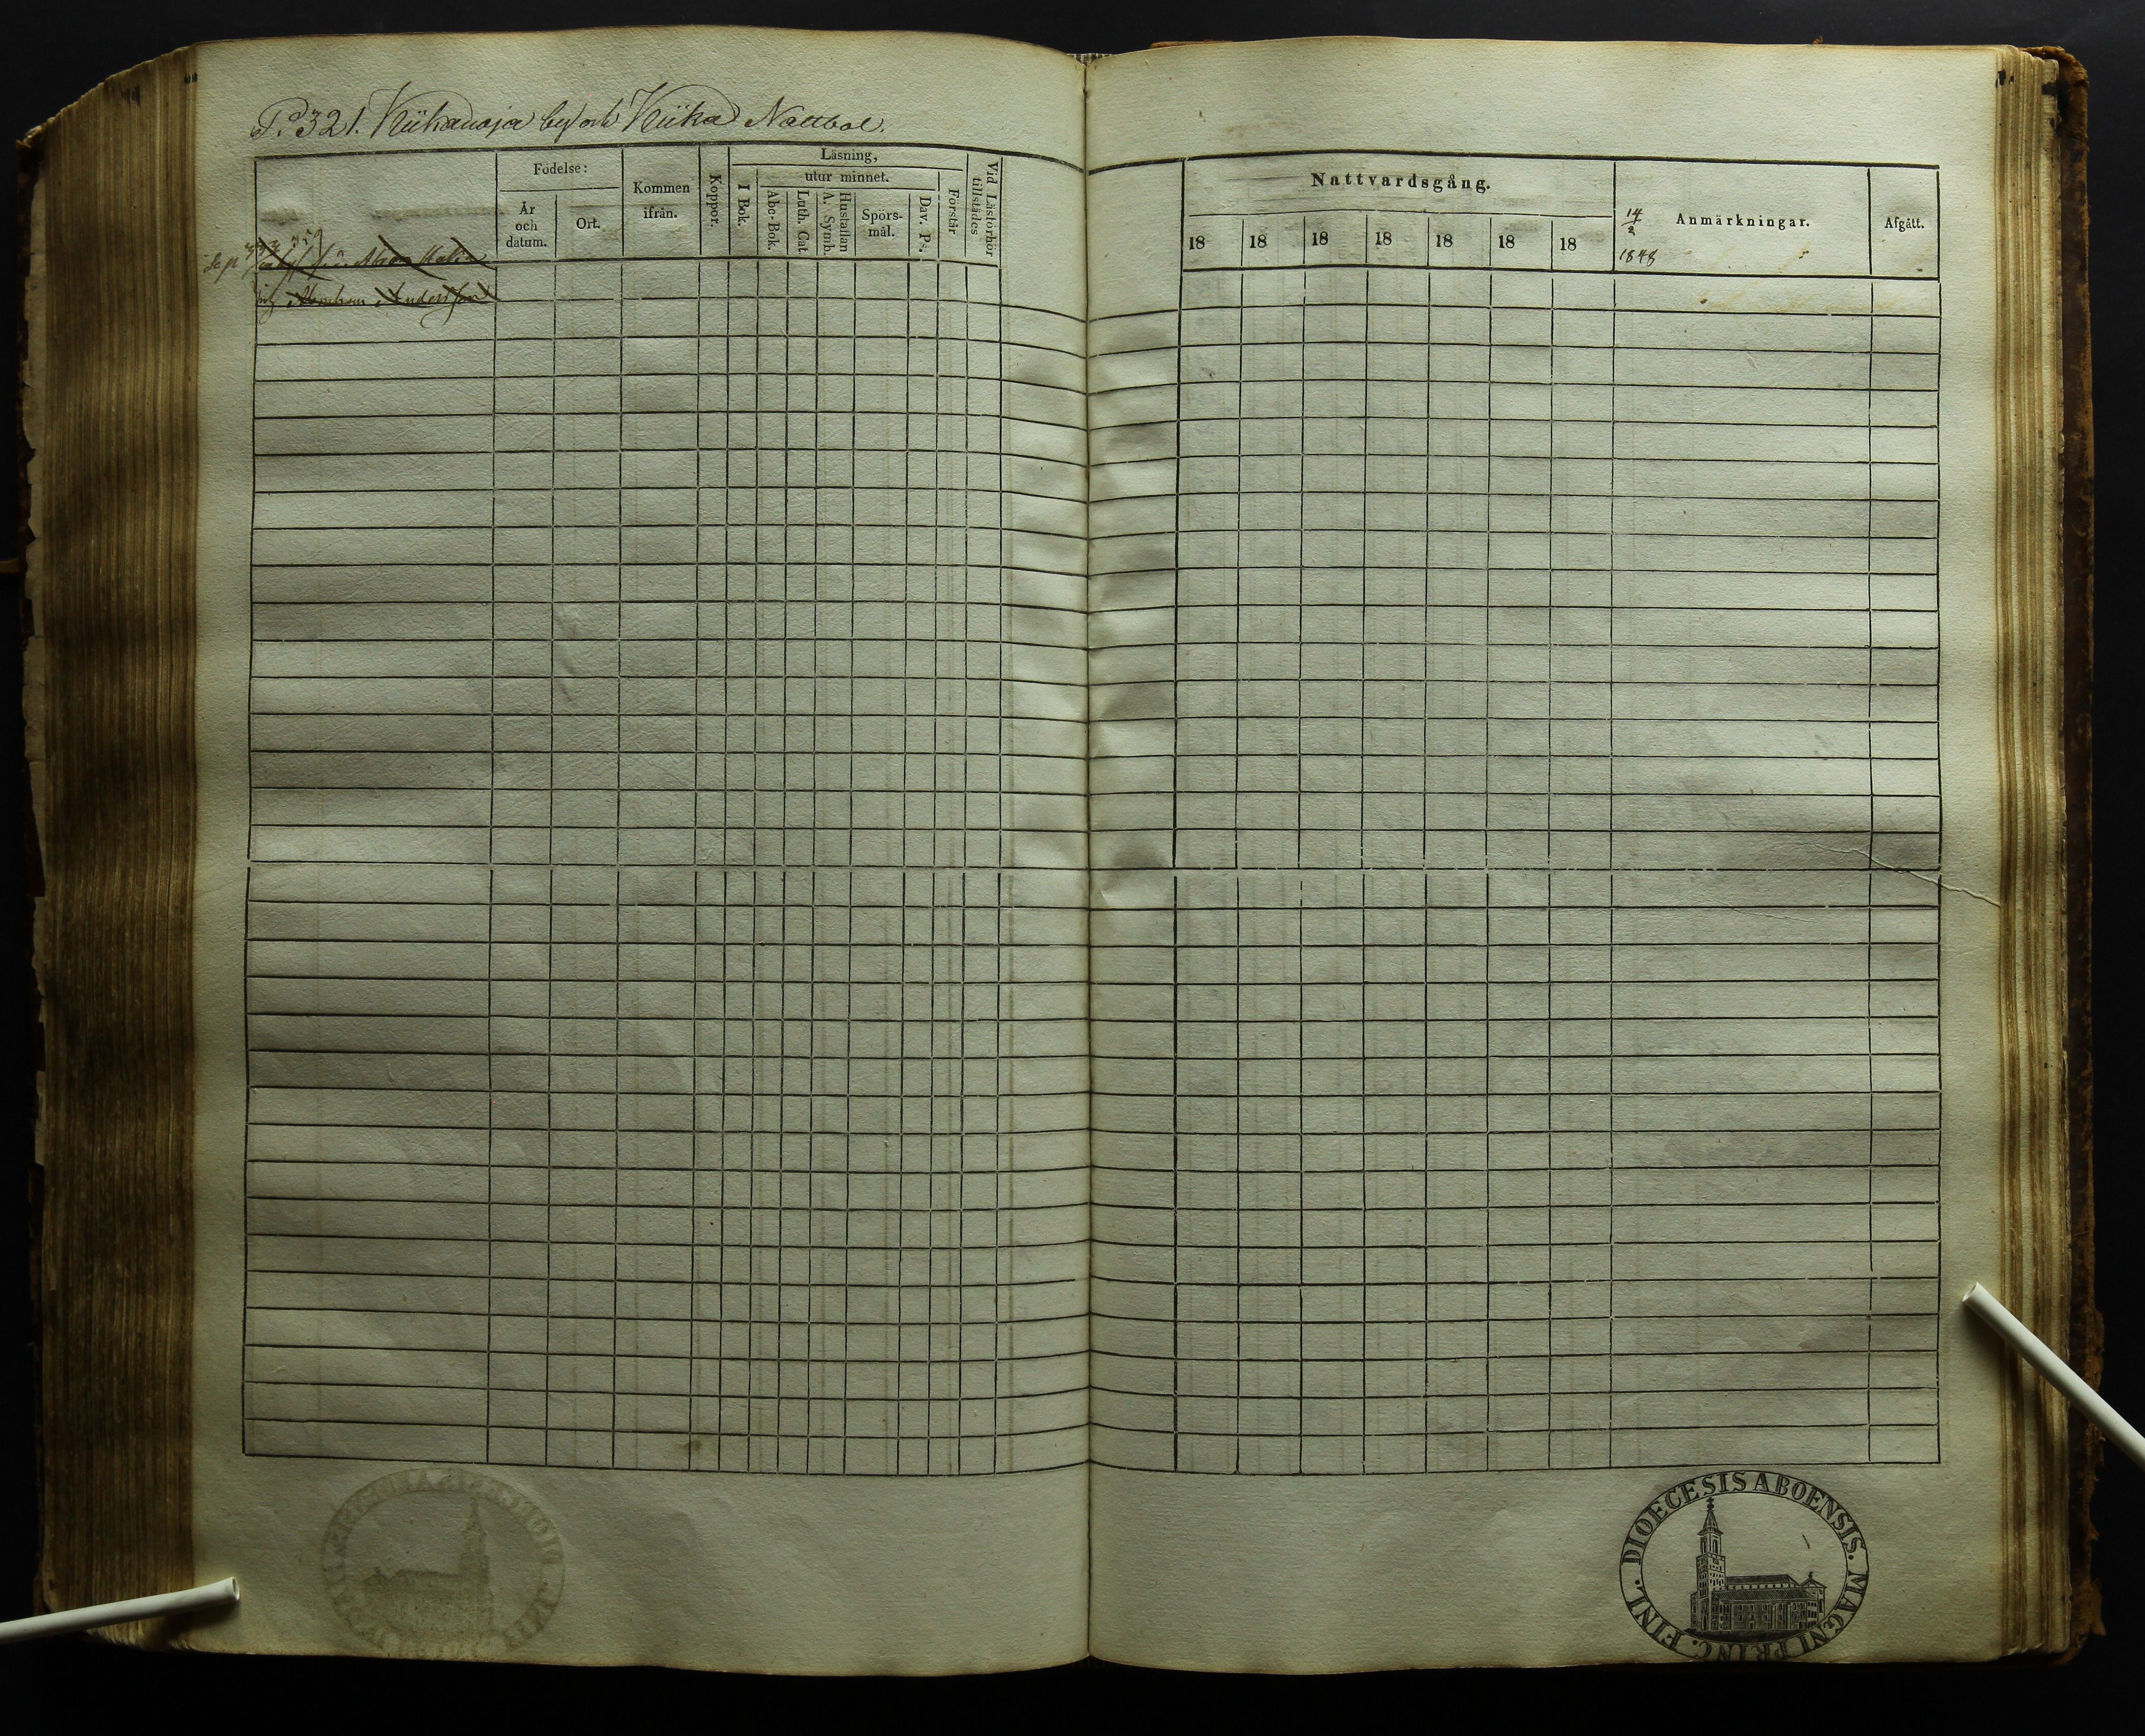 P. 321. Kiikanoja by och Kiika Nattbol.
Födelse:
År
och
datum.
Ort.
Kommen
ifrån.
Koppor.
Läsning,
I Bok.
utur minnet.
Abc-Bok.
Luth. Cat.
Hustaflan
A. Symb.
Spörs-
mål.
Dav. Ps.
Förstår
Vid Läsförhör
tillstädes
Abraham Andersson
Nattvardsgång.
18 18 18 18 18 18 18
14
2
1848
Anmärkningar.
Afgått.
DIOECESIS ABOENSIS. MAGNI PRINC. FINL.